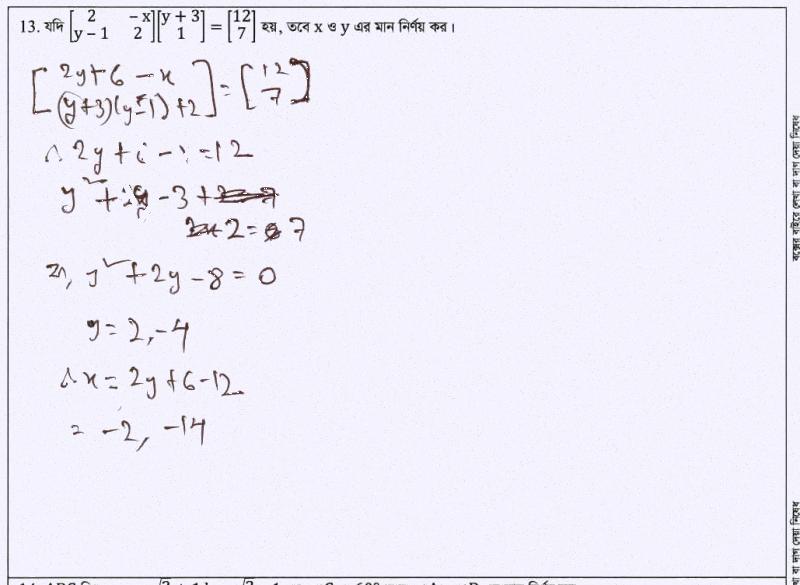 13. যদি [2 −x y − 1 2][y + 3 1] = [12 7] হয়, তবে x ও y এর মান নির্ণয় কর।
[2y+6 −x (y+3)(y−1)+2] = [12 7]
∴ 2y + − = 12
y² + − 3 +
2 = 7
বা, y² + 2y − 8 = 0
y = 2, −4
∴ x = 2y + 6 − 12
= −2, −14
বক্সের বাইরে লেখা বা দাগ দেয়া নিষেধ
বা দাগ দেয়া নিষেধ